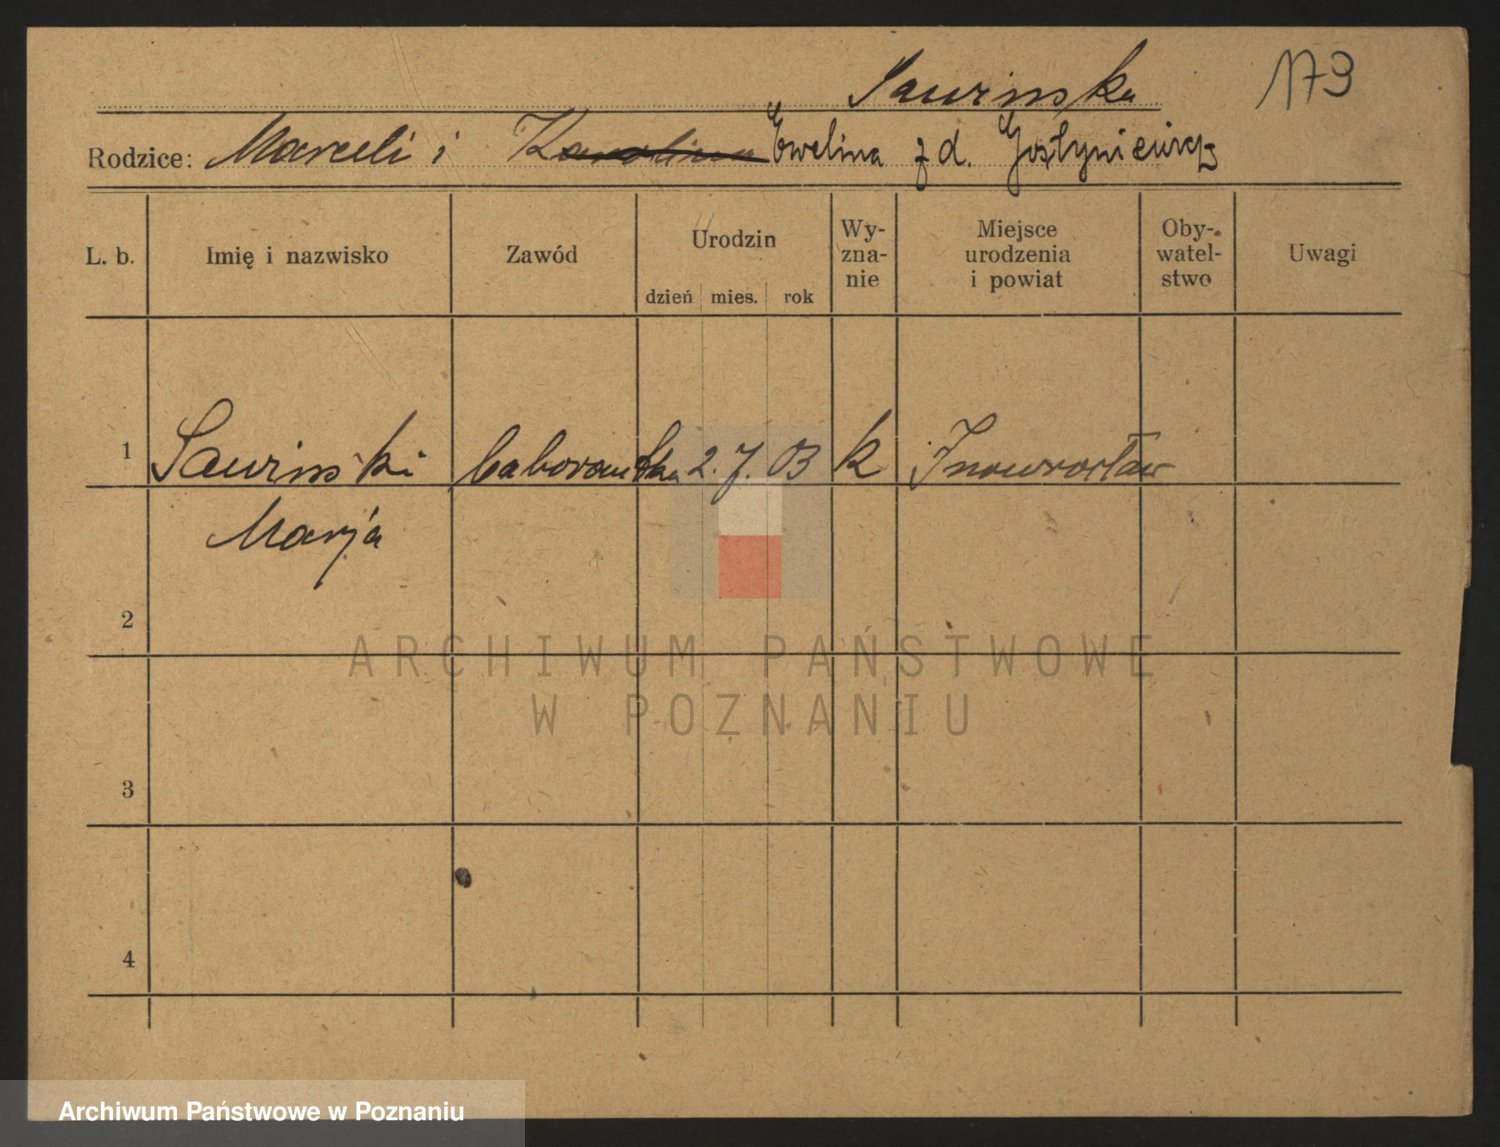 Sawinska 173
Rodzice: Marceli i Karolina Ewelina z d. Gostyniewicz
L. b. Imię i nazwisko Zawód Urodzin dzień mies. rok Wy-zna-nie Miejsce urodzenia i powiat Oby-watel-stwo Uwagi
1 Sawinski laborantka 2. 7. 03 k Inowrocław
Marja
2
ARCHIWUM PAŃSTWOWE
W POZNANIU
3
4
Archiwum Państwowe w Poznaniu